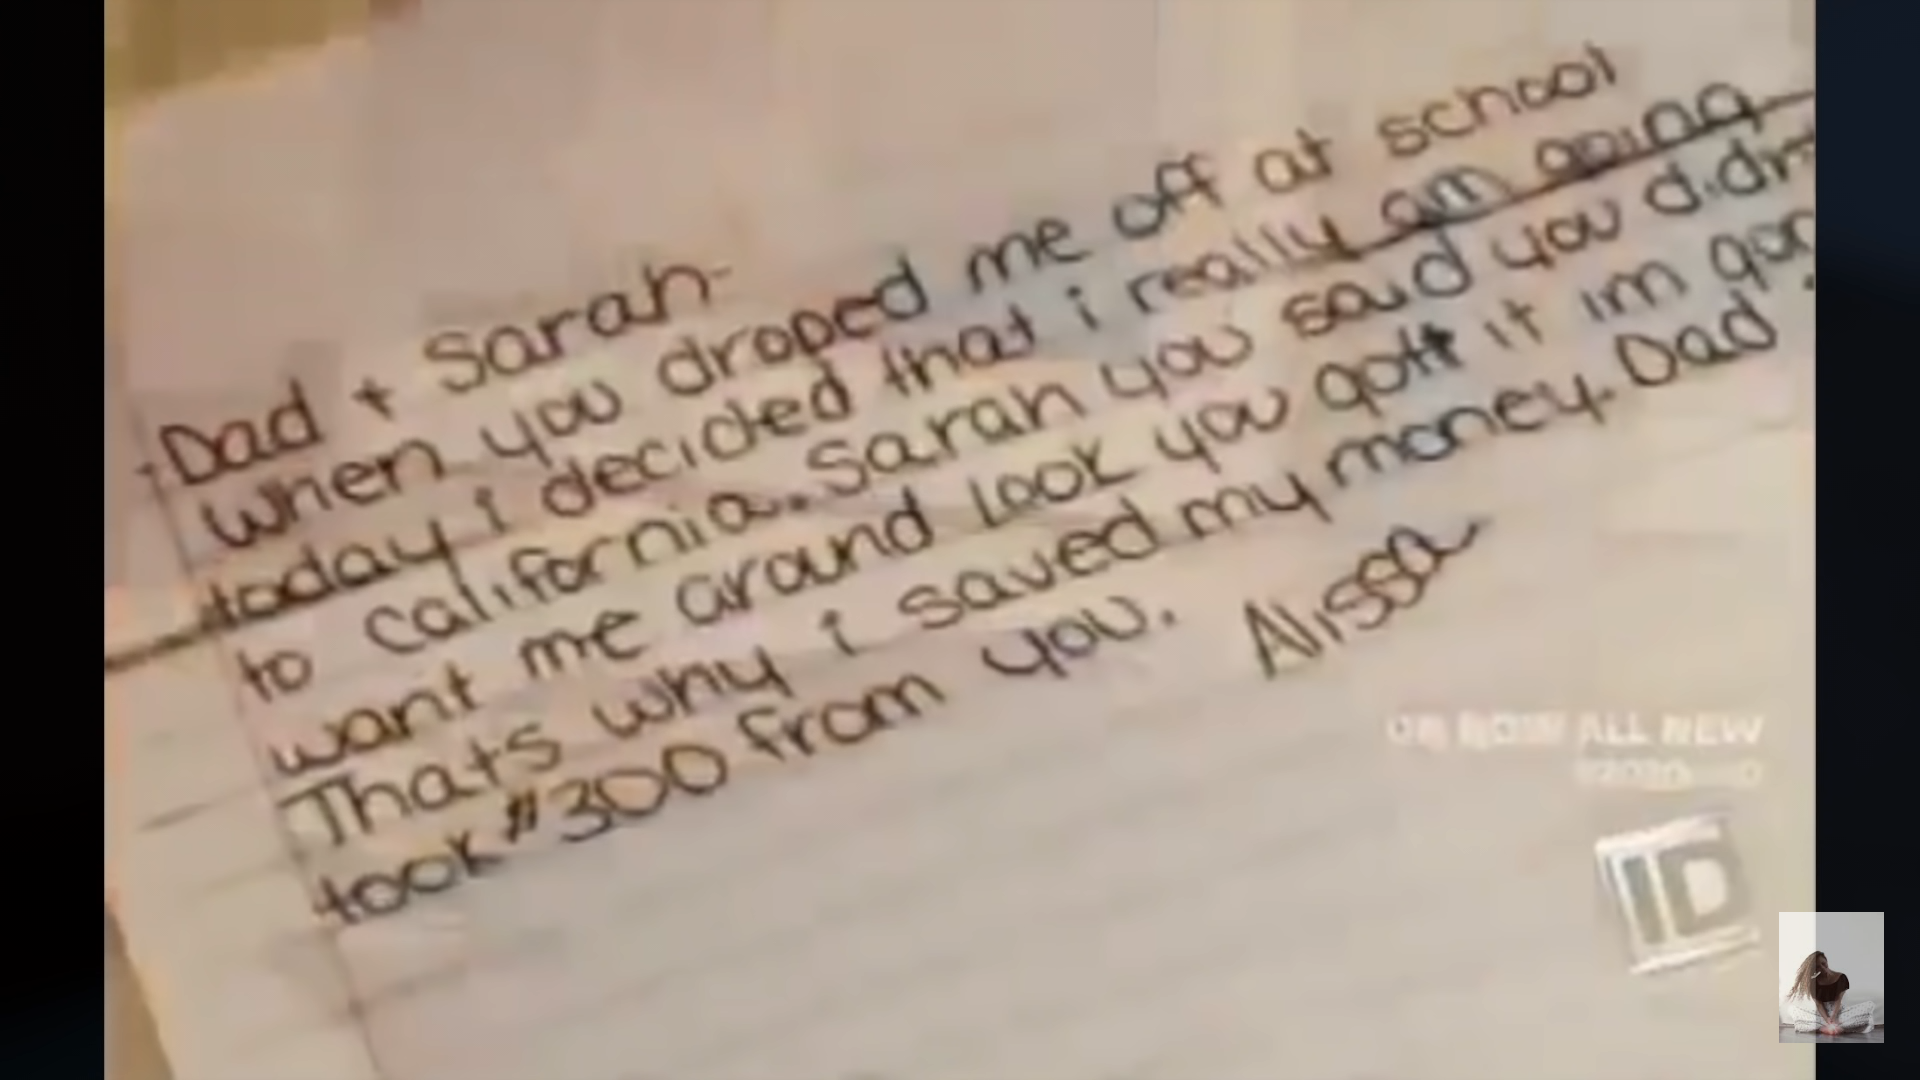 Dad + Sarah-
When you droped me off at school
today i decided that i really am going
to California. Sarah you said you didnt
want me around look you gott it im gon
Thats why i saved my money. Dad i
took $300 from you. Alissa
ON NOW ALL NEW
ID